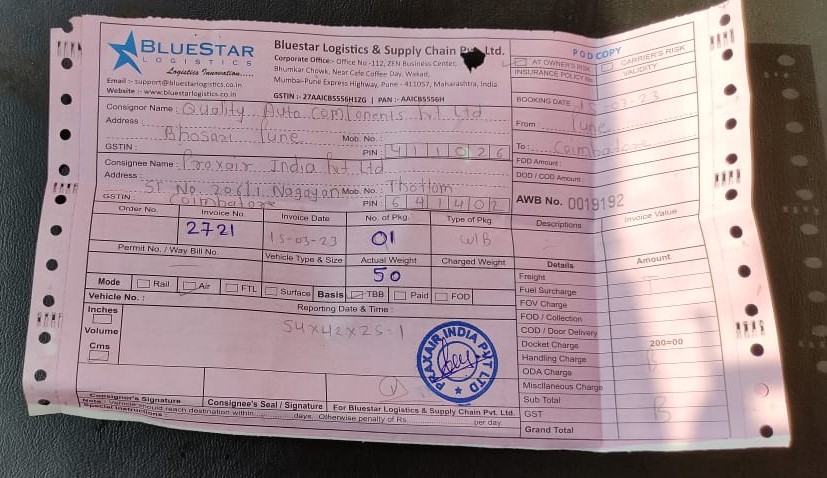 BLUESTAR
LOGISTICS
Logistics Innovation.....
Email :- support@bluestarlogistics.co.in
Website :- www.bluestarlogistics.co.in
Bluestar Logistics & Supply Chain Ltd.
Corporate Office:- Office No -112, ZEN Business Center,
Bhumkar Chowk, Near Cafe Coffee Day, Wakad,
Mumbai-Pune Express Highway, Pune - 411057, Maharashtra, India
GSTIN :- 27AAICB5556H1ZG | PAN :- AAICB5556H
POD COPY
AT OWNER'S RISK
CARRIER'S RISK
INSURANCE POLICY No.
VALIDITY
BOOKING DATE 15-03-23
From : Pune
To : Coimbatore
FOD Amount :
DOD / COD Amount :
AWB No. 0019192
Consignor Name : Quality Auto Components Pvt Ltd
Address :
Bhosari Pune
Mob. No. :
GSTIN :
PIN 411026
Consignee Name : Praxair India Pvt Ltd
Address :
Sr. No. 206/1 Nagayan Mob. No. Thottam
GSTIN : Coimbatore
PIN : 641402
Order No.
Invoice No.
Invoice Date
No. of Pkg.
Type of Pkg.
Descriptions
Invoice Value
2721
15-03-23
01
W/B
Permit No. / Way Bill No.
Vehicle Type & Size
Actual Weight
Charged Weight
50
Details
Amount
Freight
Fuel Surcharge
FOV Charge
FOD / Collection
COD / Door Delivery
Docket Charge 200=00
Handling Charge
ODA Charge
Miscllaneous Charge
Sub Total
GST
Grand Total
Mode Rail Air FTL Surface Basis TBB Paid FOD
Vehicle No. :
Reporting Date & Time :
Inches
Volume
Cms
54x42x25-1
PRAXAIR INDIA PVT LTD
Consignor's Signature
Consignee's Seal / Signature
For Bluestar Logistics & Supply Chain Pvt. Ltd.
Note : Vehicle should reach destination within days. Otherwise penalty of Rs. per day.
Special Instructions